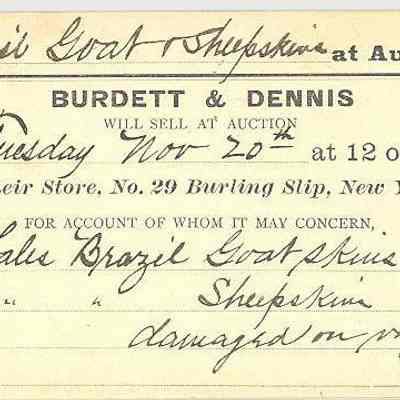 il Goat & Sheepskins at Au
BURDETT & DENNIS
WILL SELL AT AUCTION
Tuesday Nov 20th at 12 o
eir Store, No. 29 Burling Slip, New Y
FOR ACCOUNT OF WHOM IT MAY CONCERN,
ales Brazil Goat skins
" " Sheepskins
damaged on